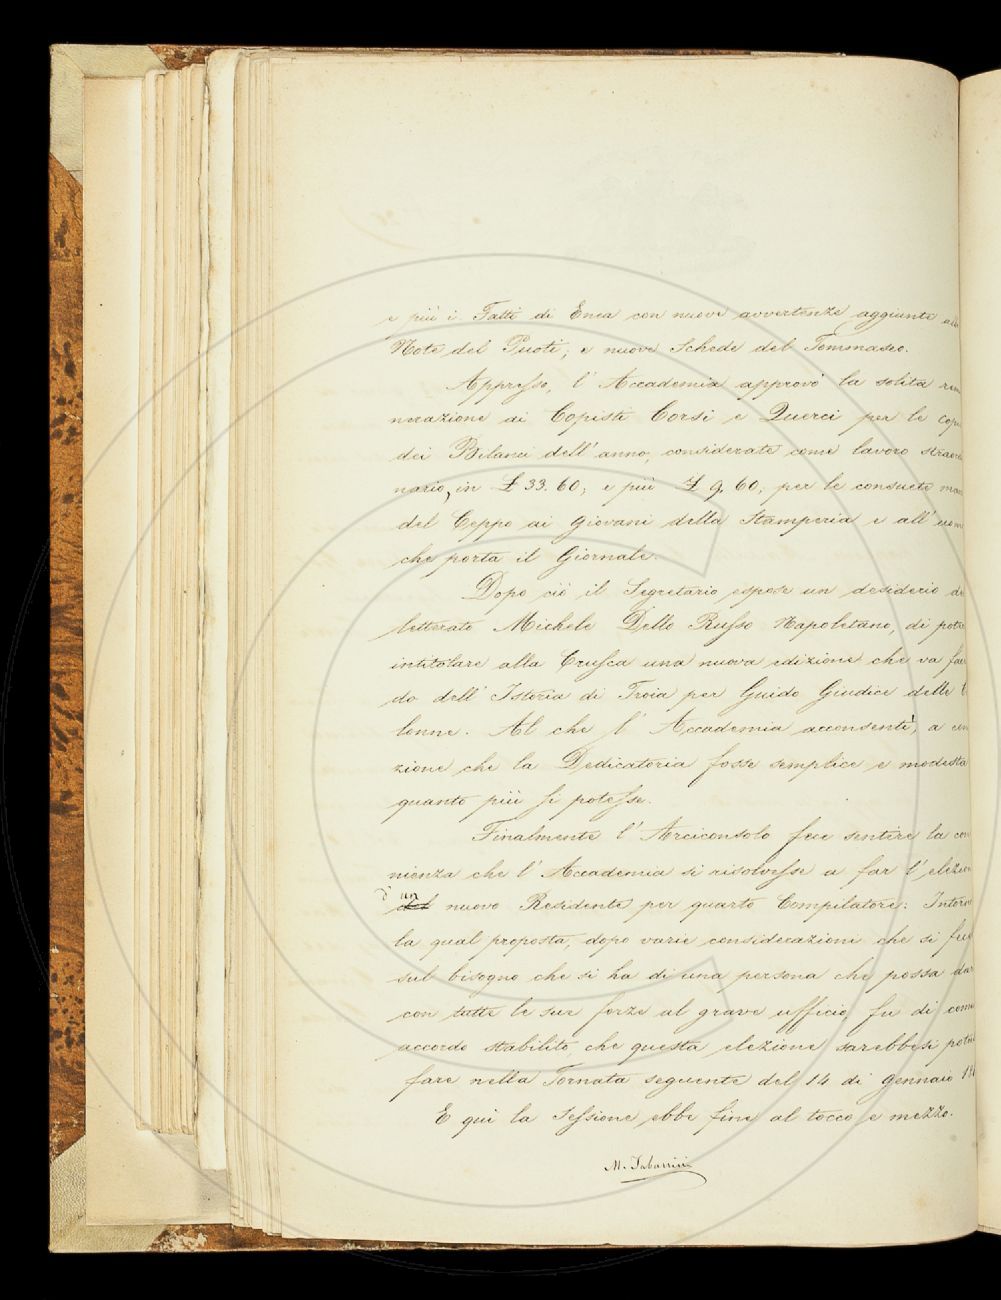 e più i Fatti di Enea con nuove avvertenze aggiunte alle
Note del Puoti; e nuove Schede del Tommaseo.
Appresso, l' Accademia approvò la solita rem
nerazione ai Copisti Corsi e Querci per le copie
dei Bilanci dell' anno, considerate come lavoro straord
nario, in £ 33. 60; e più £ 9. 60, per le consuete man
del Ceppo ai Giovani della Stamperia e all' uom
che porta il Giornale.
Dopo ciò il Segretario espose un desiderio de
letterato Michele Dello Russo Napoletano, di poter
intitolare alla Crusca una nuova edizione che va fac
do dell' Istoria di Troia per Guido Giudice delle C
lonne. Al che l' Accademia acconsentì, a con
zione che la Dedicatoria fosse semplice e modesta
quanto più si potesse.
Finalmente l' Arciconsolo fece sentire la con
nienza che l' Accademia si risolvesse a far l' elezion
d' un nuovo Residente per quarto Compilatore: Intorno
la qual proposta, dopo varie considerazioni che si fec
sul bisogno che si ha di una persona che possa dar
con tutte le sue forze al grave ufficio, fu di com
accordo stabilito, che questa elezione sarebbesi potu
fare nella Tornata seguente del 14 di Gennaio 18
E qui la Sessione ebbe fine al tocco e mezzo.
M. Tabarrini